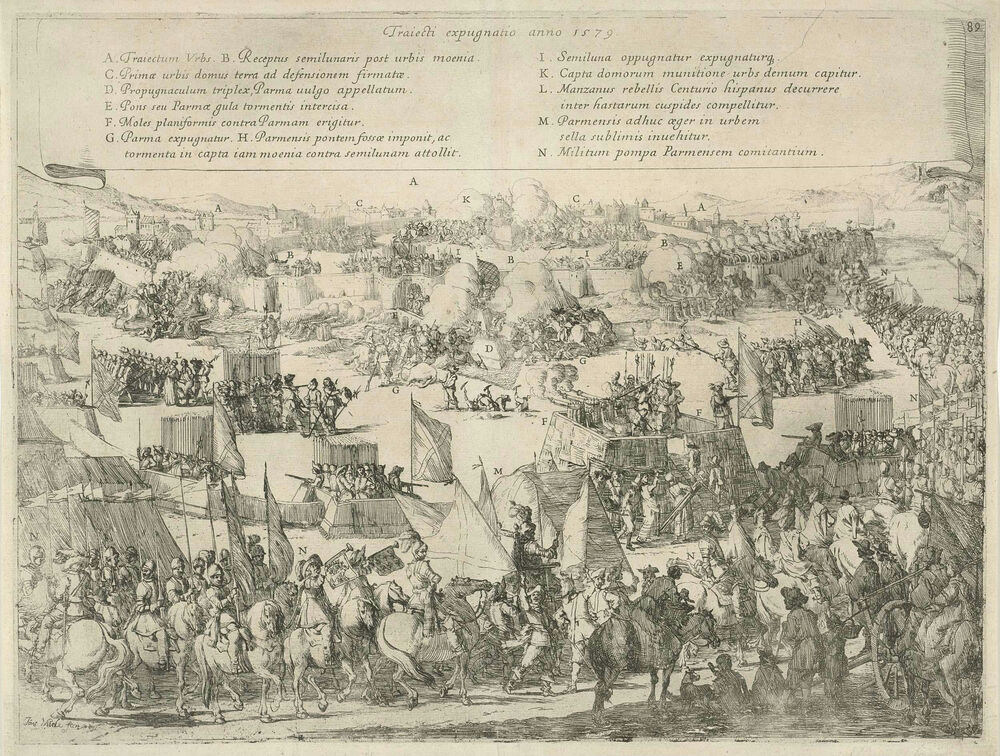 89
Traiecti expugnatio anno 1579
A. Traiectum Vrbs. B. Receptus semilunaris post urbis moenia.
C. Primæ urbis domus terra ad defensionem firmatæ.
D. Propugnaculum triplex, Parma uulgo appellatum.
E. Pons seu Parmæ gula tormentis intercisa.
F. Moles planiformis contra Parmam erigitur.
G. Parma expugnatur. H. Parmensis pontem fossæ imponit, ac
tormenta in capta iam moenia contra semilunam attollit.
I. Semiluna oppugnatur expugnaturq.
K. Capta domorum munitione urbs demum capitur.
L. Manzanus rebellis Centurio hispanus decurrere
inter hastarum cuspides compellitur.
M. Parmensis adhuc æger in urbem
sella sublimis inuehitur.
N. Militum pompa Parmensem comitantium.
A
A C K C A
B B I B E
N
H
L D G
G
F F N
M
N N N